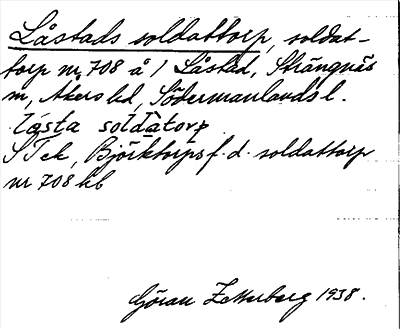 Låstads soldattorp, soldat-
torp nr 708 å 1 Låstad, Strängnäs
m, Åkers hd, Södermanlands l.
låsta soldatorp
S Tek, Björktorps f. d. soldattorp
nr 708 hb
Göran Zetterberg 1938.